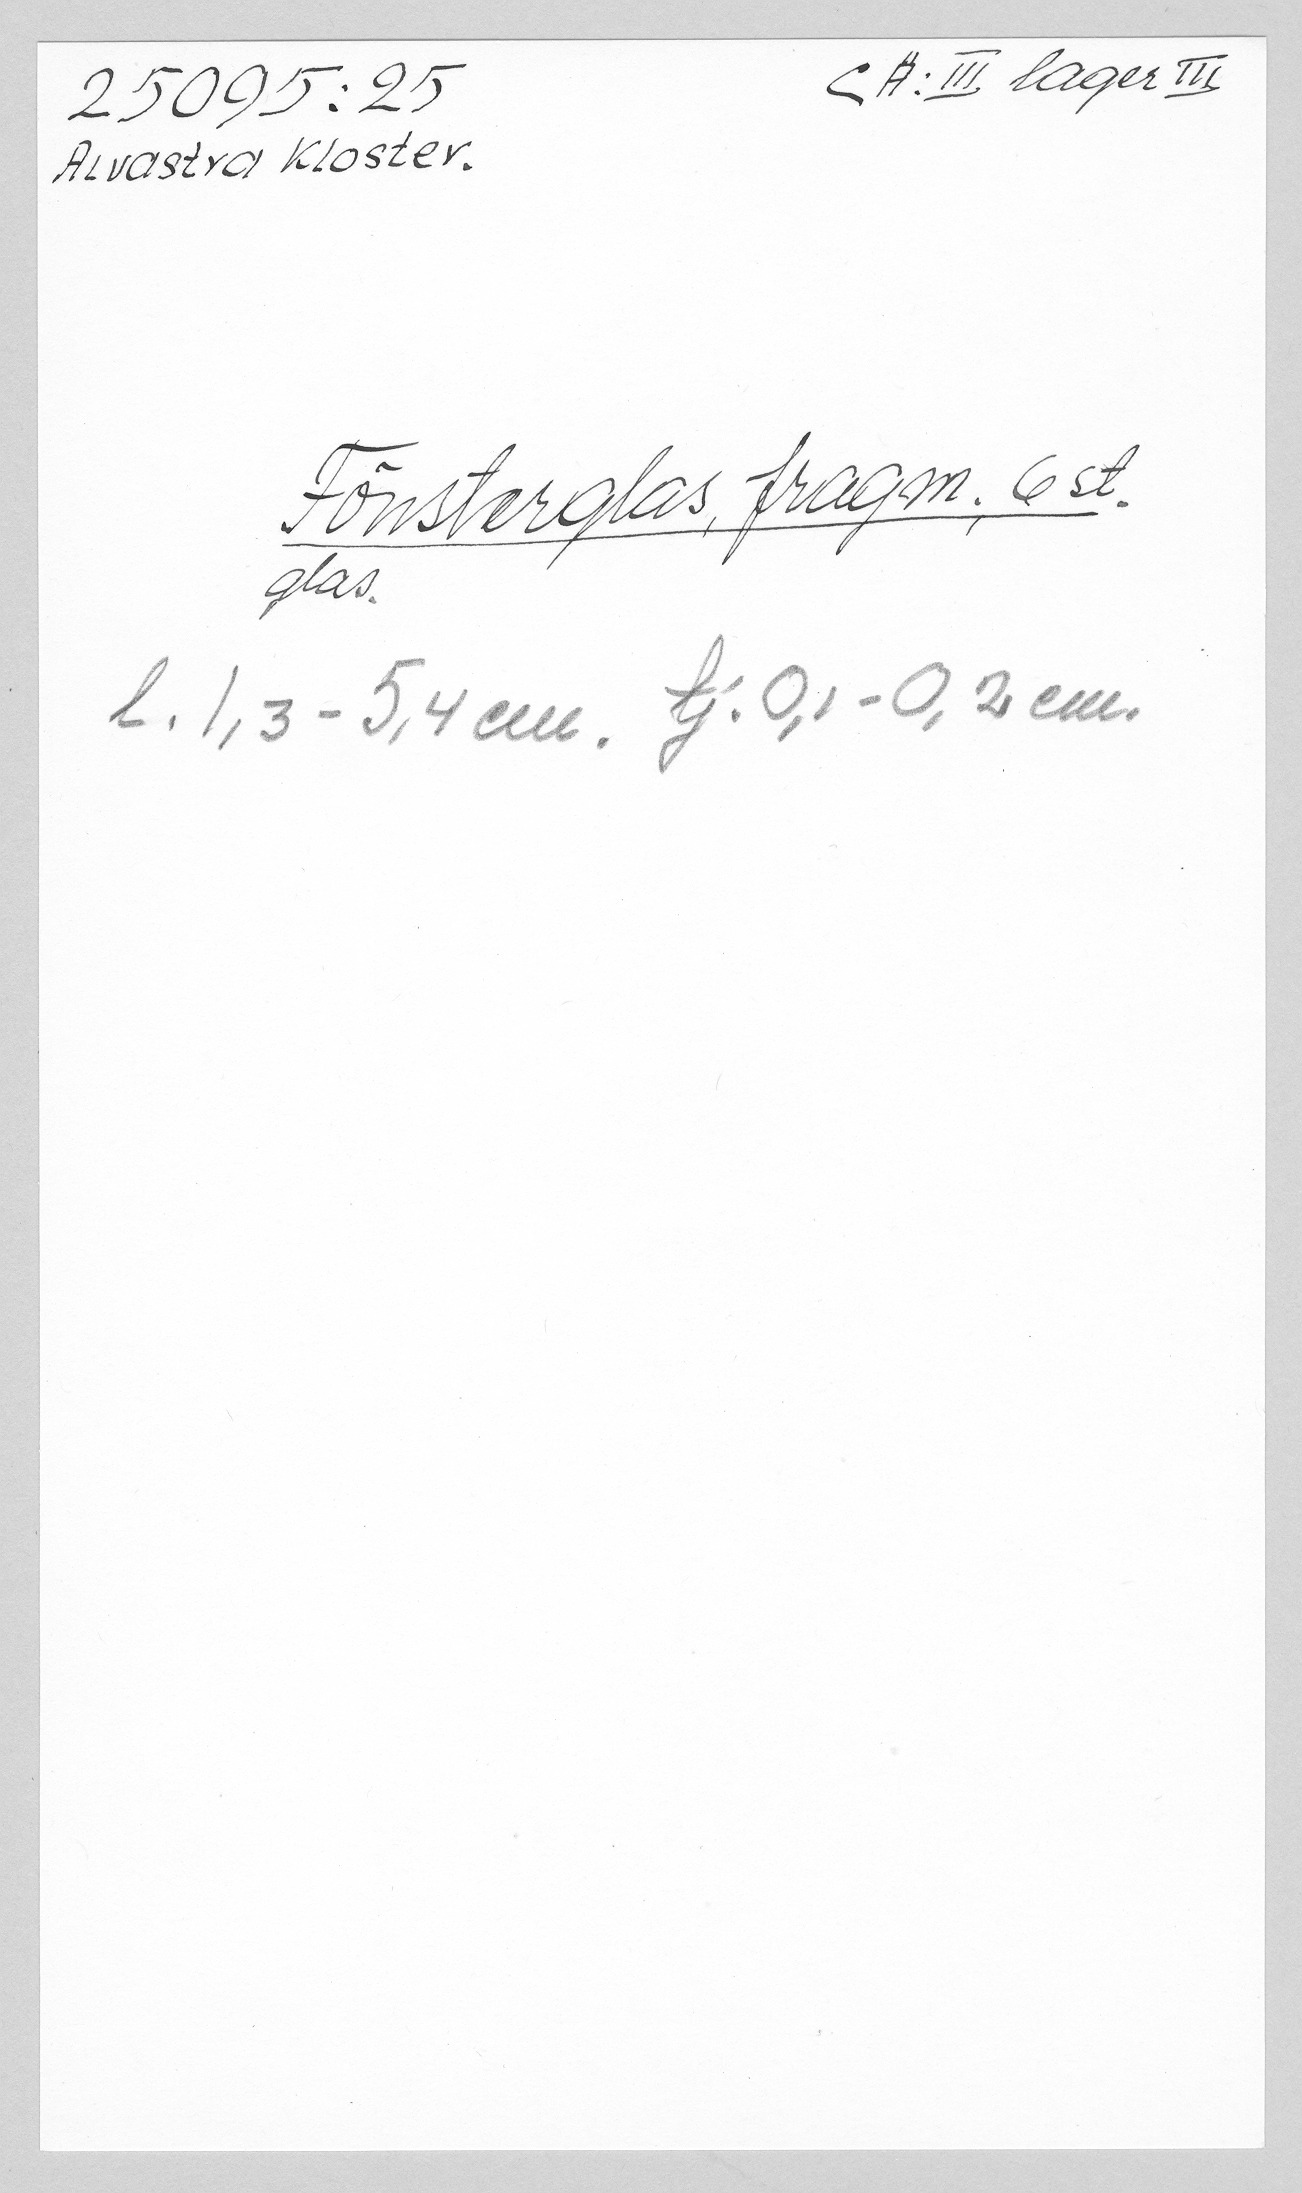 25095:25
CÄ: III lager III
Alvastra Kloster.
Fönsterglas, fragm., 6 st.
glas.
l. 1,3 - 5,4 cm. tj: 0,1 - 0,2 cm.